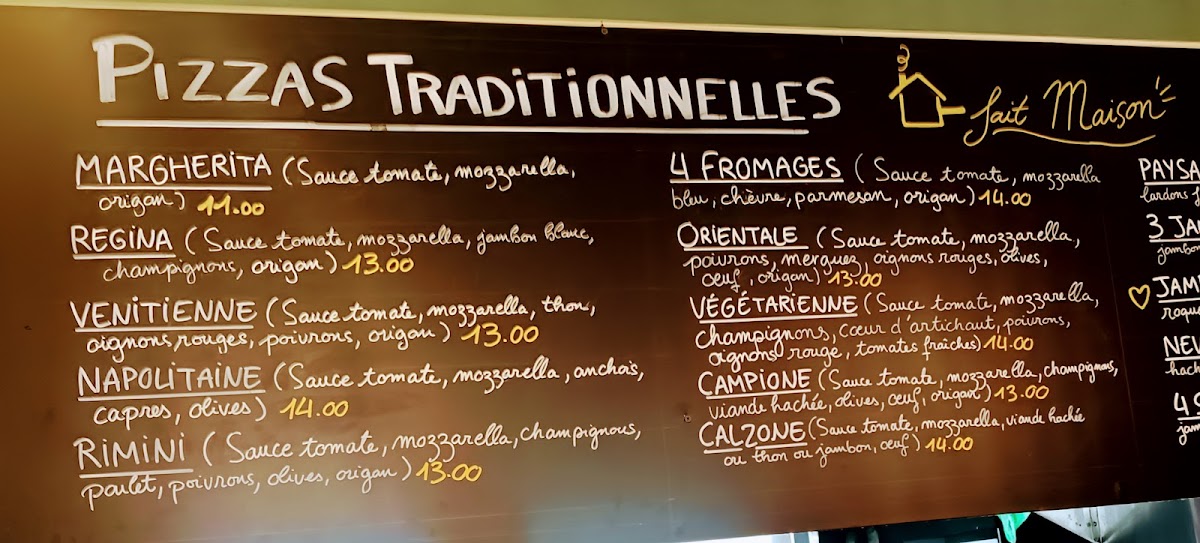 PIZZAS TRADITIONNELLES
fait Maison
MARGHERITA (Sauce tomate, mozzarella,
origan) 11.00
REGINA (Sauce tomate, mozzarella, jambon blanc,
champignons, origan) 13.00
VENITIENNE (Sauce tomate, mozzarella, thon,
oignons rouges, poivrons, origan) 13.00
NAPOLITAINE (Sauce tomate, mozzarella, anchois,
capres, olives) 14.00
RIMINI (Sauce tomate, mozzarella, champignons,
poulet, poivrons, olives, origan) 13.00
4 FROMAGES (Sauce tomate, mozzarella
bleu, chèvre, parmesan, origan) 14.00
ORIENTALE (Sauce tomate, mozzarella,
poivrons, merguez, oignons rouges, olives,
oeuf, origan) 13.00
VÉGÉTARIENNE (Sauce tomate, mozzarella,
champignons, cœur d'artichaut, poivrons,
oignons rouge, tomates fraîches) 14.00
CAMPIONE (Sauce tomate, mozzarella, champignons,
viande hachée, olives, œuf, origan) 13.00
CALZONE (Sauce tomate, mozzarella, viande hachée
ou thon ou jambon, œuf) 14.00
PAYSA
lardons f
3 JA
jambon
JAM
roqu
NE
hach
4
jam